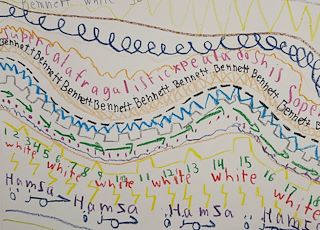 Bennett white
supercalafragalisticxpealadoshis Sope
Bennett Bennett Bennett Bennett Bennett Bennett Bennett Bennett Bennett
1 2 3 4 5 6 7 8 9 10 11 12 13 14 15 16 17 18
white white white white white
Hamsa Hamsa Hamsa Hamsa